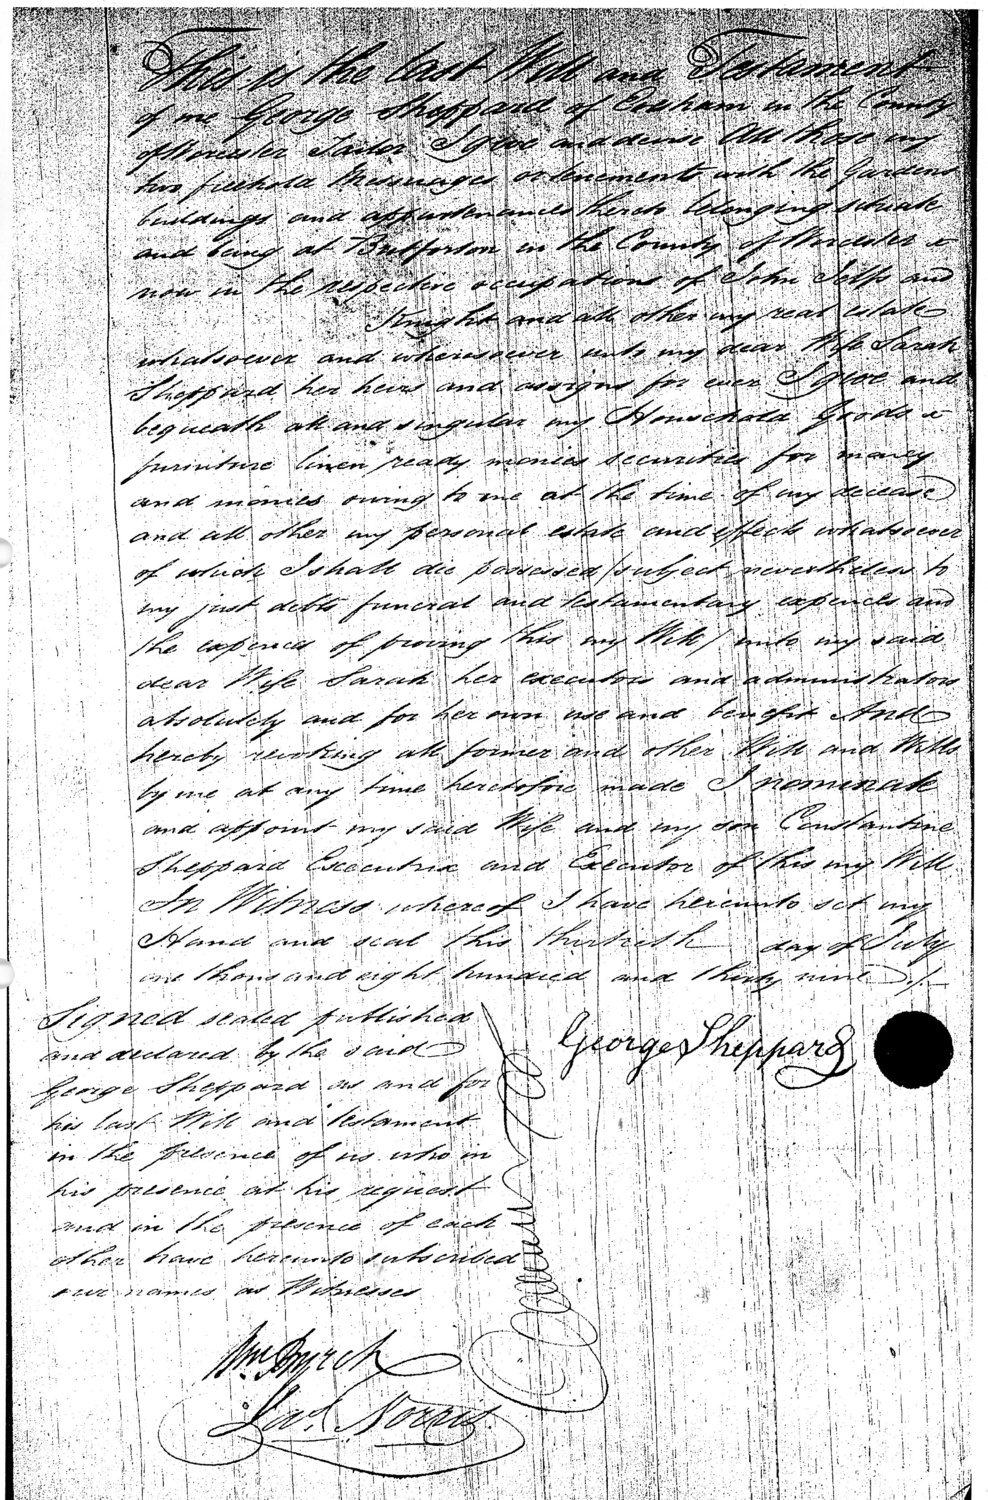 This is the last Will and Testament
of me George Sheppard of Evesham in the County
of Worcester Tailor I give and devise All those my
two freehold Messuages or tenements with the Gardens
buildings and appurtenances thereto belonging situate
and being at Bretforton in the County of Worcester &
now in the respective occupations of John and
Knight and all other my real estate
whatsoever and wheresoever unto my dear Wife Sarah
Sheppard her heirs and assigns for ever I give and
bequeath all and singular my Household Goods &
furniture linen ready monies securities for money
and monies owing to me at the time of my decease
and all other my personal estate and effects whatsoever
of which I shall die possessed (subject nevertheless to
my just debts funeral and testamentary expences and
the expences of proving this my Will) unto my said
dear Wife Sarah her executors and administrators
absolutely and for her own use and benefit And
hereby revoking all former and other Will and Wills
by me at any time heretofore made I nominate
and appoint my said Wife and my son Constantine
Sheppard Executrix and Executor of this my Will
In Witness whereof I have hereunto set my
Hand and seal this thirtieth day of July
one thousand eight hundred and thirty nine
George Sheppard
Signed sealed published
and declared by the said
George Sheppard as and for
his last Will and testament
in the presence of us who in
his presence at his request
and in the presence of each
other have hereunto subscribed
our names as Witnesses
Wm Byrch
Norris